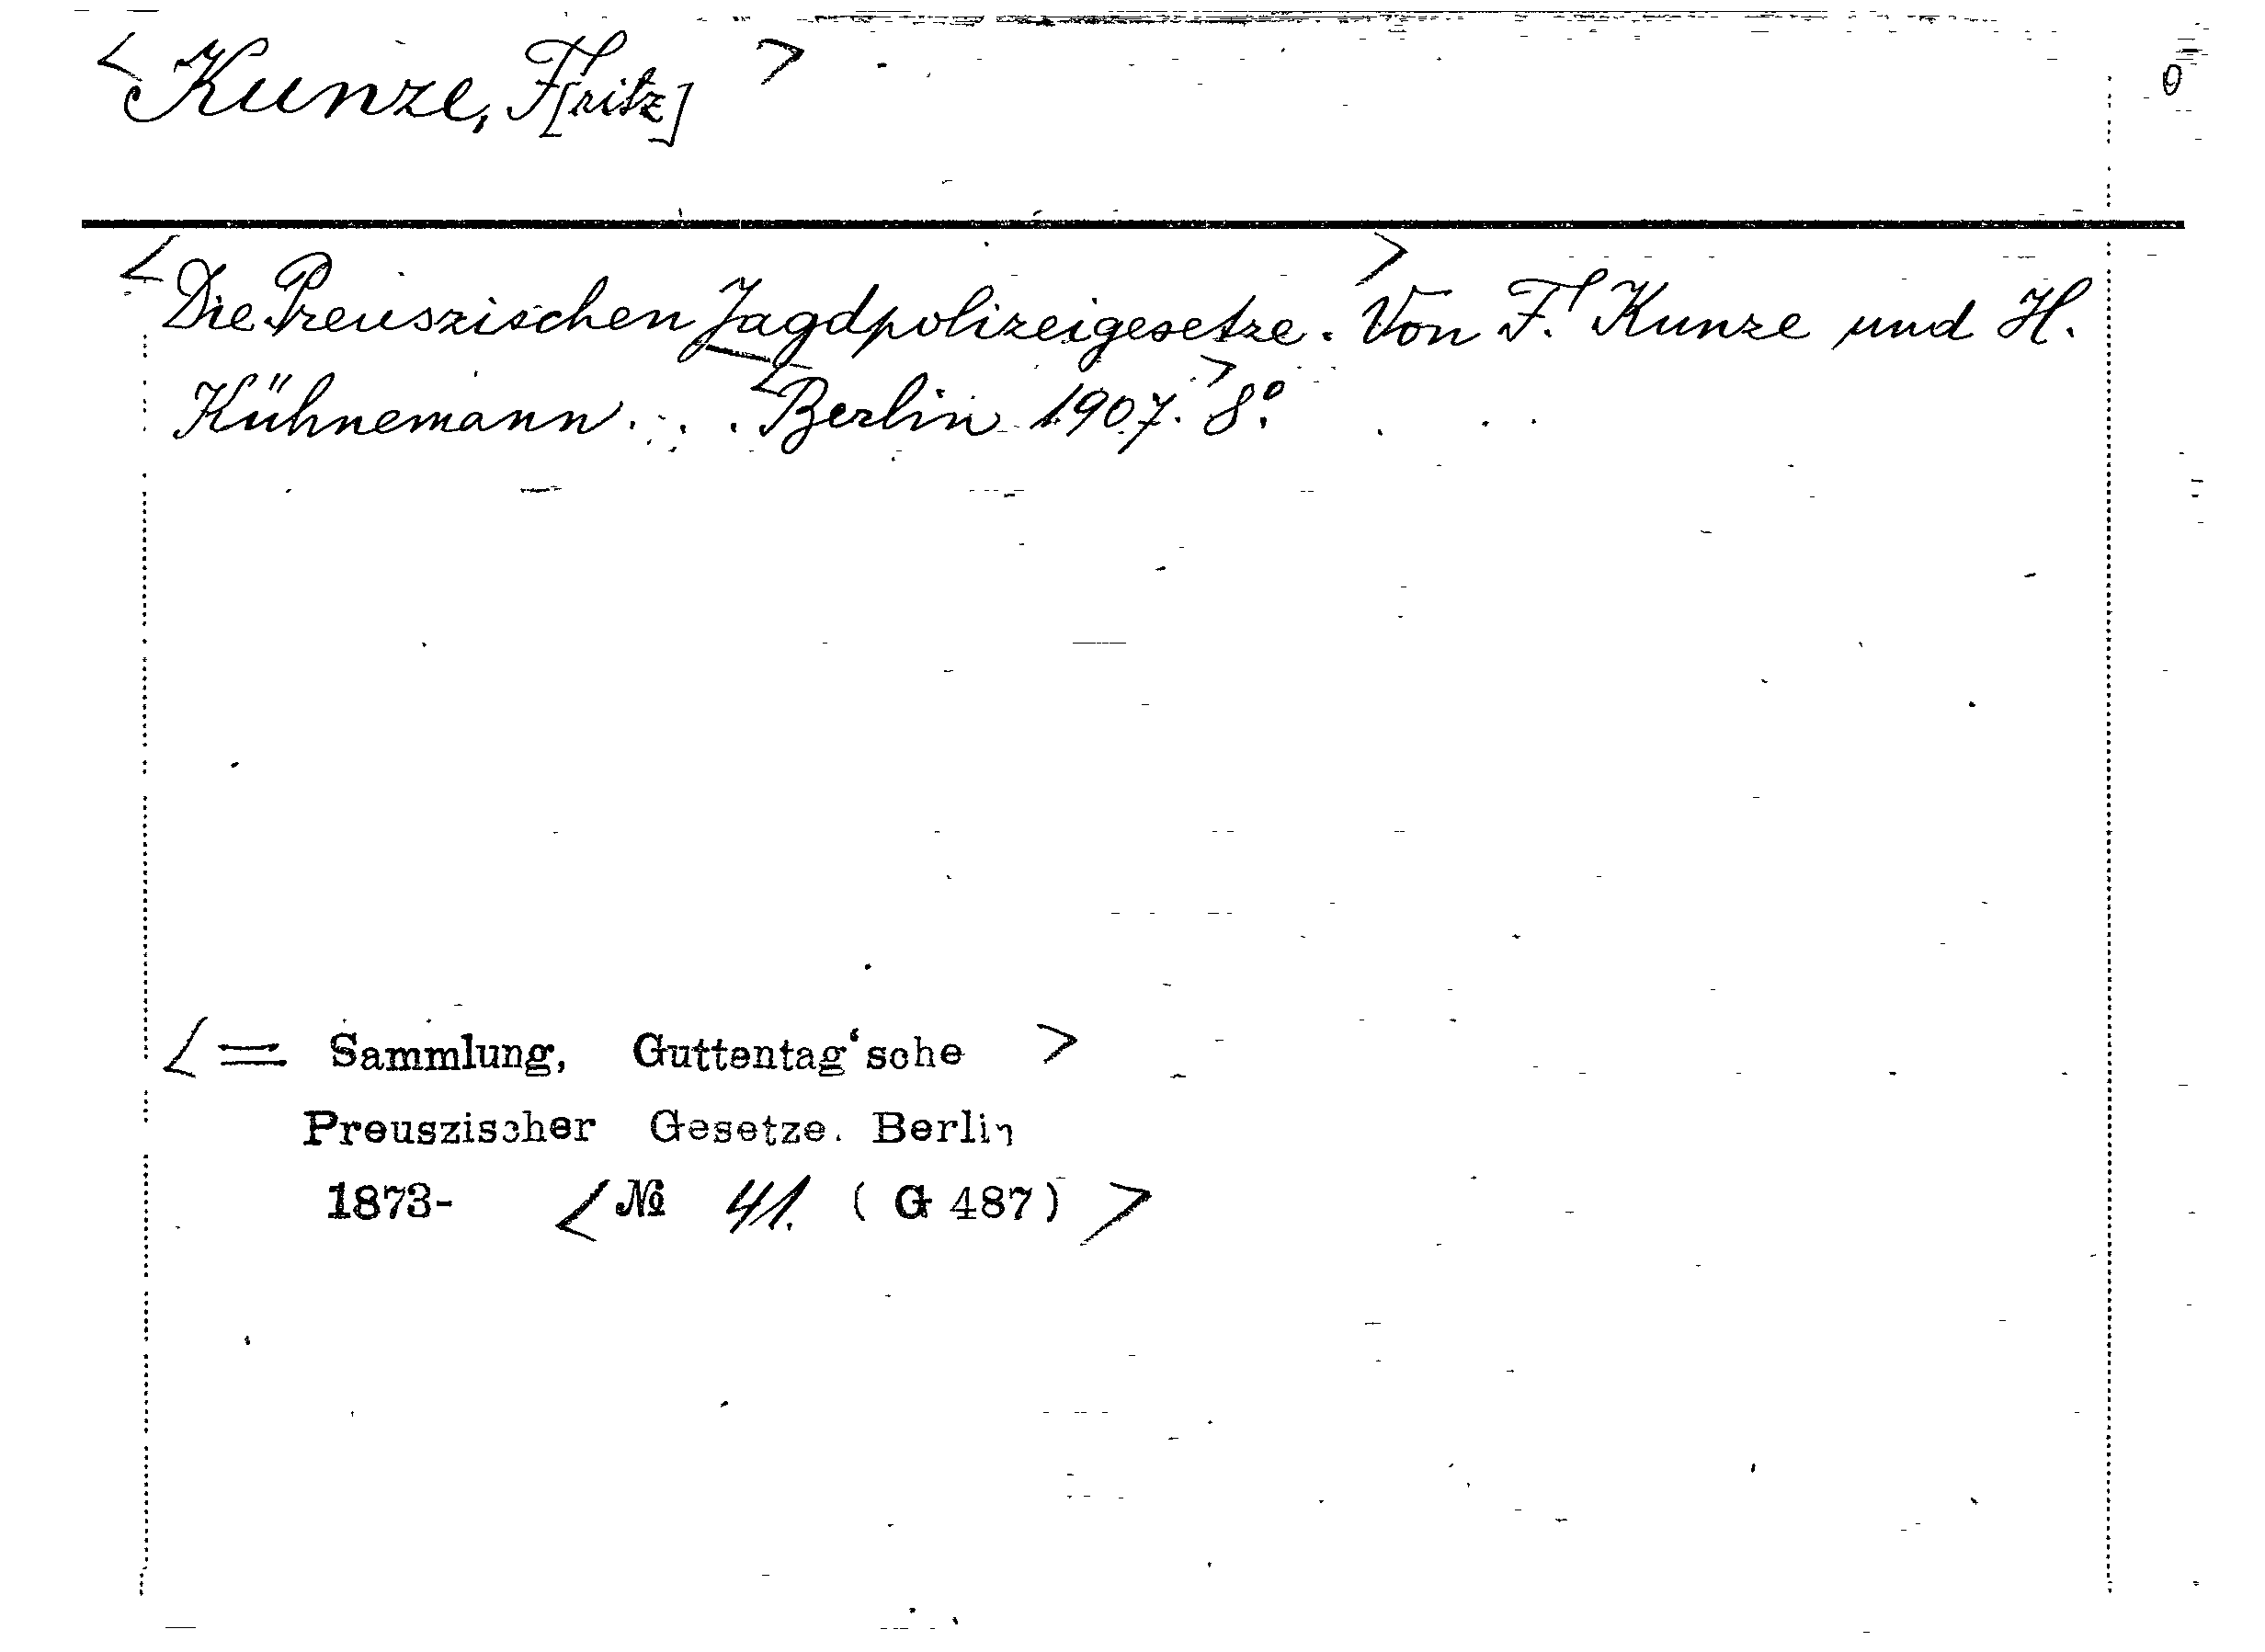 < Kunze, F[ritz] >
0
< Die Preuszischen Jagdpolizeigesetze. > Von F. Kunze und H.
Kühnemann. . . < Berlin 1907. > 8º.
< = Sammlung, Guttentag'sche >
Preuszischer Gesetze. Berlin
1873- < № 41. ( G 487) >